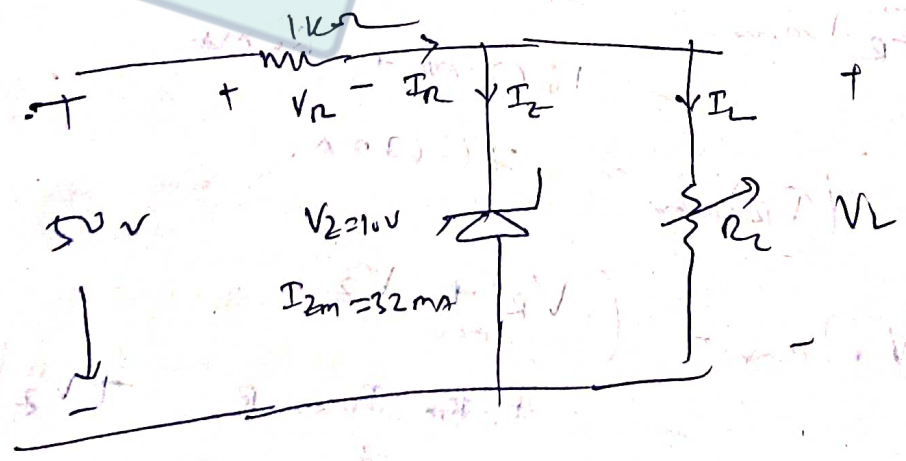 1kΩ
+ V_R - I_R I_Z I_L +
50 V V_Z=10V R_L V_L
I_Zm=32mA
-
-